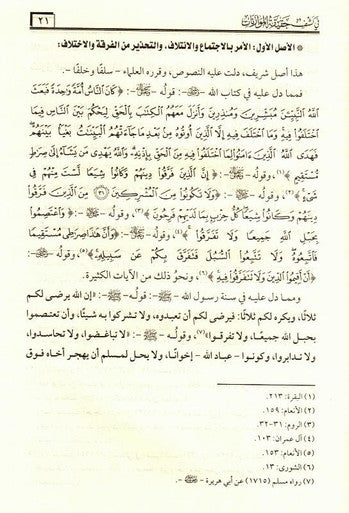 كاشف حقيقة المؤلفات ٢١
* الأصل الأول: الأمر بالاجتماع والائتلاف، والتحذير من الفرقة والاختلاف:
هذا أصل شريف، دلت عليه النصوص، وقرره العلماء – سلفًا وخلفًا –.
فمما دل عليه في كتاب الله – ﷻ –: ﴿كَانَ النَّاسُ أُمَّةً وَاحِدَةً فَبَعَثَ
اللَّهُ النَّبِيِّينَ مُبَشِّرِينَ وَمُنذِرِينَ وَأَنزَلَ مَعَهُمُ الْكِتَابَ بِالْحَقِّ لِيَحْكُمَ بَيْنَ النَّاسِ فِيمَا
اخْتَلَفُوا فِيهِ وَمَا اخْتَلَفَ فِيهِ إِلَّا الَّذِينَ أُوتُوهُ مِنْ بَعْدِ مَا جَاءَتْهُمُ الْبَيِّنَاتُ بَغْيًا بَيْنَهُمْ
فَهَدَى اللَّهُ الَّذِينَ ءَامَنُوا لِمَا اخْتَلَفُوا فِيهِ مِنَ الْحَقِّ بِإِذْنِهِ وَاللَّهُ يَهْدِي مَن يَشَاءُ إِلَى صِرَاطٍ
مُّسْتَقِيمٍ﴾(١)، وقوله – ﷻ –: ﴿إِنَّ الَّذِينَ فَرَّقُوا دِينَهُمْ وَكَانُوا شِيَعًا لَّسْتَ مِنْهُمْ فِي
شَيْءٍ﴾(٢)، وقوله – ﷻ –: ﴿وَلَا تَكُونُوا مِنَ الْمُشْرِكِينَ (٣١) مِنَ الَّذِينَ فَرَّقُوا
دِينَهُمْ وَكَانُوا شِيَعًا كُلُّ حِزْبٍ بِمَا لَدَيْهِمْ فَرِحُونَ﴾(٣)، وقوله – ﷻ –: ﴿وَاعْتَصِمُوا
بِحَبْلِ اللَّهِ جَمِيعًا وَلَا تَفَرَّقُوا﴾(٤)، وقوله – ﷻ –: ﴿وَأَنَّ هَذَا صِرَاطِي مُسْتَقِيمًا
فَاتَّبِعُوهُ وَلَا تَتَّبِعُوا السُّبُلَ فَتَفَرَّقَ بِكُمْ عَن سَبِيلِهِ﴾(٥)، وقوله – ﷻ –:
﴿أَنْ أَقِيمُوا الدِّينَ وَلَا تَتَفَرَّقُوا فِيهِ﴾(٦)، ونحوُ ذلك من الآيات الكثيرة.
ومما دل عليه في سنة رسول الله – ﷺ – قولُه – ﷺ –: «إن الله يرضى لكم
ثلاثًا، ويكره لكم ثلاثًا: فيرضى لكم أن تعبدوه، ولا تشركوا به شيئًا، وأن تعتصموا
بحبل الله جميعًا، ولا تفرقوا»(٧)، وقولُه – ﷺ –: «لا تباغضوا، ولا تحاسدوا،
ولا تدابروا، وكونوا – عباد الله – إخوانًا، ولا يحل لمسلم أن يهجر أخاه فوق
(١) البقرة: ٢١٣.
(٢) الأنعام: ١٥٩.
(٣) الروم: ٣١-٣٢.
(٤) آل عمران: ١٠٣.
(٥) الأنعام: ١٥٣.
(٦) الشورى: ١٣.
(٧) رواه مسلم (١٧١٥) عن أبي هريرة – –.